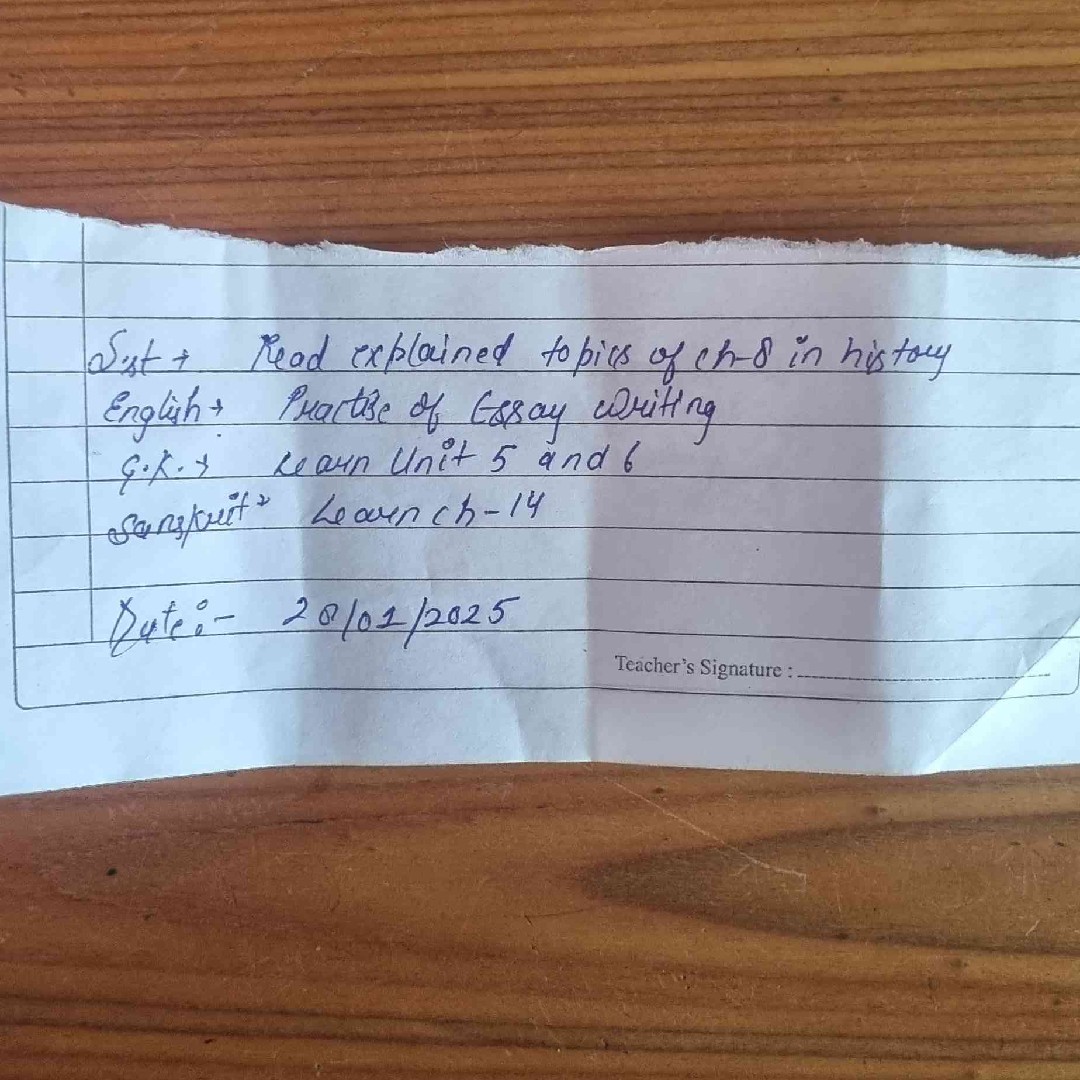 S.st → Read explained topics of ch-8 in history
English → Practise of Essay Writing
G.K. → Learn Unit 5 and 6
Sanskrit → Learn ch-14
Date:- 28/01/2025
Teacher's Signature :